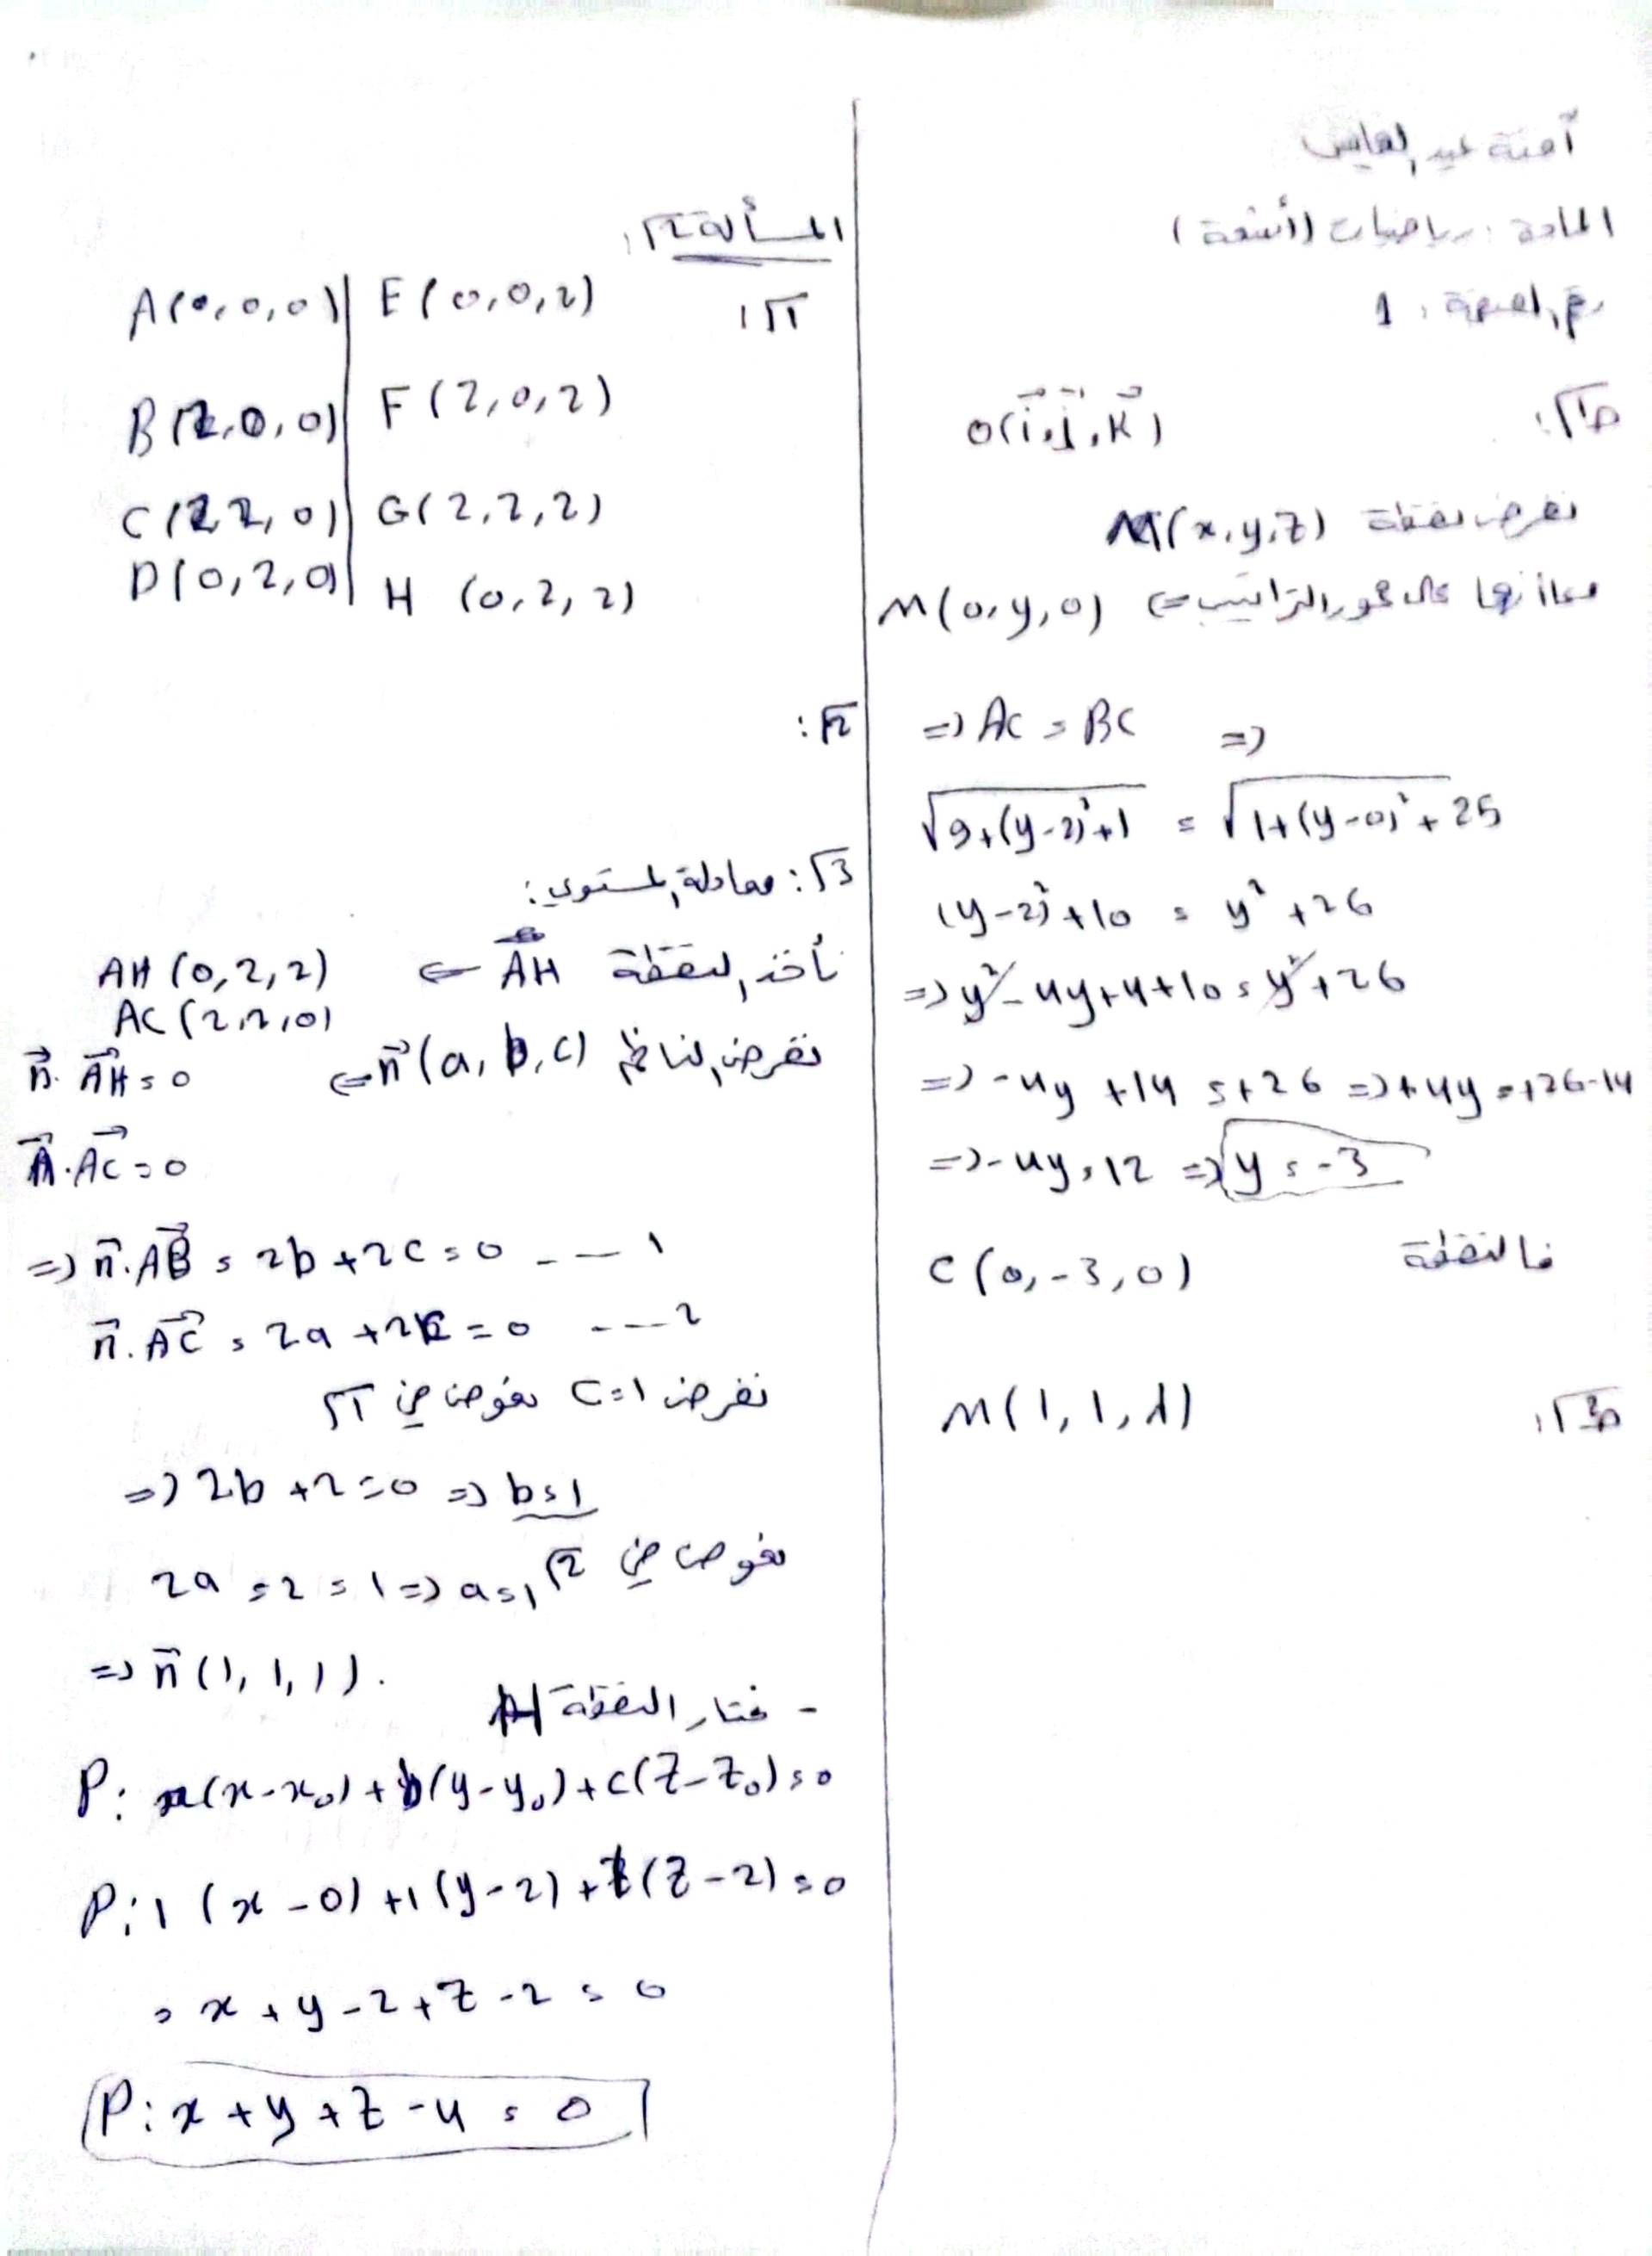 آمنة عبد العباس
المادة: رياضيات (أشعة)
رقم الصفحة: 1
O(i, j, k)
نفرض نقطة M(x, y, z)
بما أنها على محور التراتيب ⇐ M(0, y, 0)
=> AC = BC =>
√9+(y-2)²+1 = √1+(y-0)²+25
(y-2)²+10 = y²+26
=> y²-4y+4+10 = y²+26
=> -4y+14 = +26 => +4y = +26-14
=> -4y = 12 => y = -3
فالنقطة C(0, -3, 0)
M(1, 1, 1)
المسألة 2:
1:
A(0, 0, 0) | E(0, 0, 2)
B(2, 0, 0) | F(2, 0, 2)
C(2, 2, 0) | G(2, 2, 2)
D(0, 2, 0) | H(0, 2, 2)
2:
3: معادلة المستوي:
نأخذ النقطة AH ⇐ AH(0, 2, 2)
AC(2, 2, 0)
نفرض الناظم n(a, b, c) ⇐ n.AH = 0
n.AC = 0
=> n.AB = 2b+2c = 0 --- 1
n.AC = 2a+2b = 0 --- 2
نفرض c=1 نعوض في 1
=> 2b+2=0 => b=1
نعوض في 2
2a = 2 = 1 => a=1
=> n(1, 1, 1).
- نختار النقطة H
P: a(x-x₀)+b(y-y₀)+c(z-z₀)=0
P: 1(x-0)+1(y-2)+1(z-2)=0
= x+y-2+z-2=0
P: x+y+z-4=0